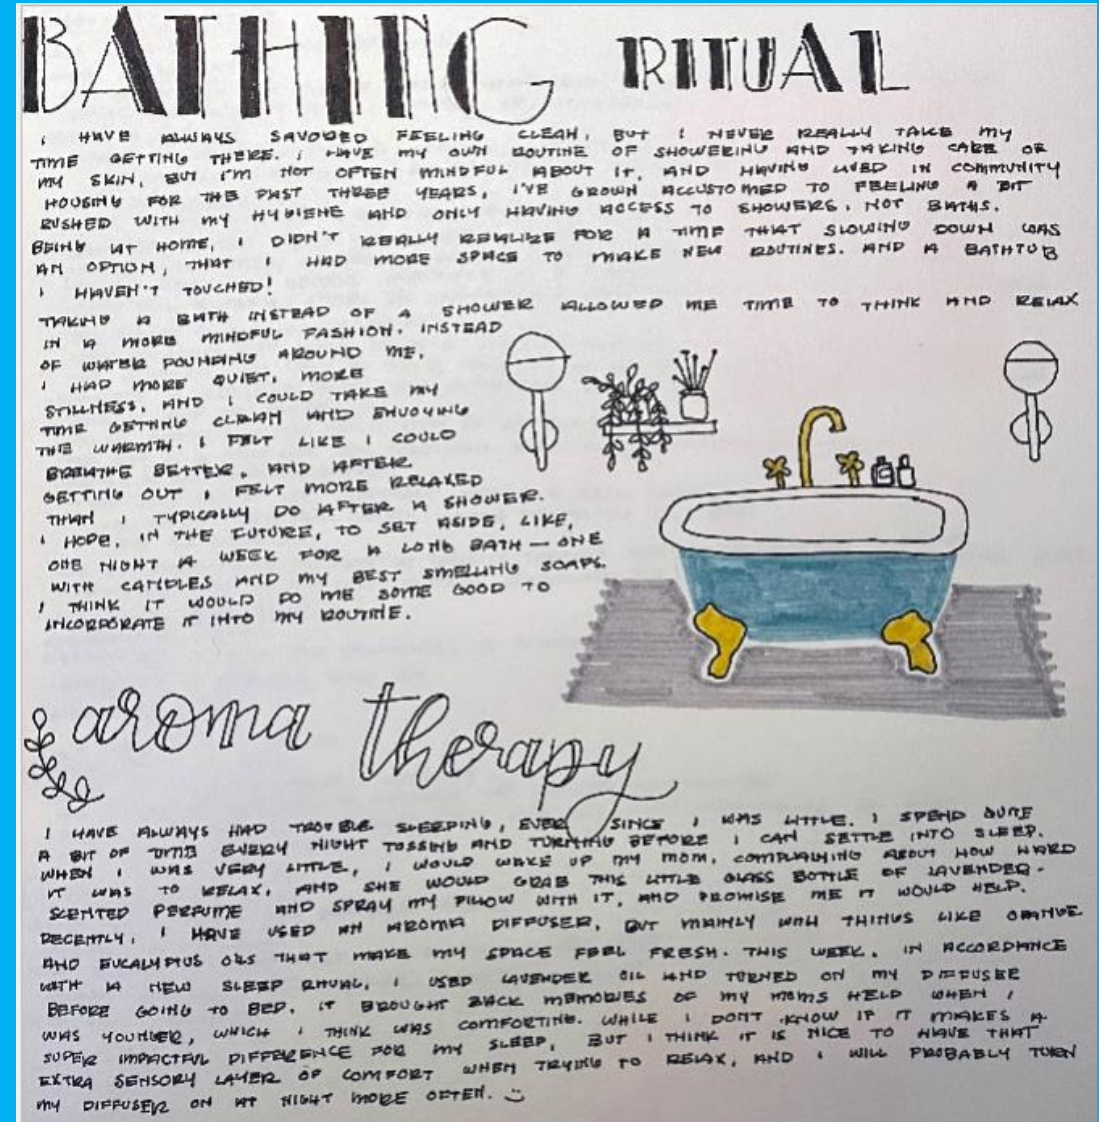 BATHING RITUAL
I HAVE ALWAYS SAVORED FEELING CLEAN, BUT I NEVER REALLY TAKE MY
TIME GETTING THERE. I HAVE MY OWN ROUTINE OF SHOWERING AND TAKING CARE OF
MY SKIN, BUT I'M NOT OFTEN MINDFUL ABOUT IT, AND HAVING LIVED IN COMMUNITY
HOUSING FOR THE PAST THREE YEARS, I'VE GROWN ACCUSTOMED TO FEELING A BIT
RUSHED WITH MY HYGIENE AND ONLY HAVING ACCESS TO SHOWERS, NOT BATHS.
BEING AT HOME, I DIDN'T REALLY REALIZE FOR A TIME THAT SLOWING DOWN WAS
AN OPTION, THAT I HAD MORE SPACE TO MAKE NEW ROUTINES. AND A BATHTUB
I HAVEN'T TOUCHED!
TAKING A BATH INSTEAD OF A SHOWER ALLOWED ME TIME TO THINK AND RELAX
IN A MORE MINDFUL FASHION. INSTEAD
OF WATER POUNDING AROUND ME,
I HAD MORE QUIET, MORE
STILLNESS, AND I COULD TAKE MY
TIME GETTING CLEAN AND ENJOYING
THE WARMTH. I FELT LIKE I COULD
BREATHE BETTER, AND AFTER
GETTING OUT I FELT MORE RELAXED
THAN I TYPICALLY DO AFTER A SHOWER.
I HOPE, IN THE FUTURE, TO SET ASIDE, LIKE,
ONE NIGHT A WEEK FOR A LONG BATH — ONE
WITH CANDLES AND MY BEST SMELLING SOAPS.
I THINK IT WOULD DO ME SOME GOOD TO
INCORPORATE IT INTO MY ROUTINE.
aroma therapy
I HAVE ALWAYS HAD TROUBLE SLEEPING, EVER SINCE I WAS LITTLE. I SPEND QUITE
A BIT OF TIME EVERY NIGHT TOSSING AND TURNING BEFORE I CAN SETTLE INTO SLEEP.
WHEN I WAS VERY LITTLE, I WOULD WAKE UP MY MOM, COMPLAINING ABOUT HOW HARD
IT WAS TO RELAX, AND SHE WOULD GRAB THIS LITTLE GLASS BOTTLE OF LAVENDER-
SCENTED PERFUME AND SPRAY MY PILLOW WITH IT, AND PROMISE ME IT WOULD HELP.
RECENTLY, I HAVE USED AN AROMA DIFFUSER, BUT MAINLY WITH THINGS LIKE ORANGE
AND EUCALYPTUS OILS THAT MAKE MY SPACE FEEL FRESH. THIS WEEK, IN ACCORDANCE
WITH A NEW SLEEP RITUAL, I USED LAVENDER OIL AND TURNED ON MY DIFFUSER
BEFORE GOING TO BED. IT BROUGHT BACK MEMORIES OF MY MOMS HELP WHEN I
WAS YOUNGER, WHICH I THINK WAS COMFORTING. WHILE I DON'T KNOW IF IT MAKES A
SUPER IMPACTFUL DIFFERENCE FOR MY SLEEP, BUT I THINK IT IS NICE TO HAVE THAT
EXTRA SENSORY LAYER OF COMFORT WHEN TRYING TO RELAX, AND I WILL PROBABLY TURN
MY DIFFUSER ON AT NIGHT MORE OFTEN. :)